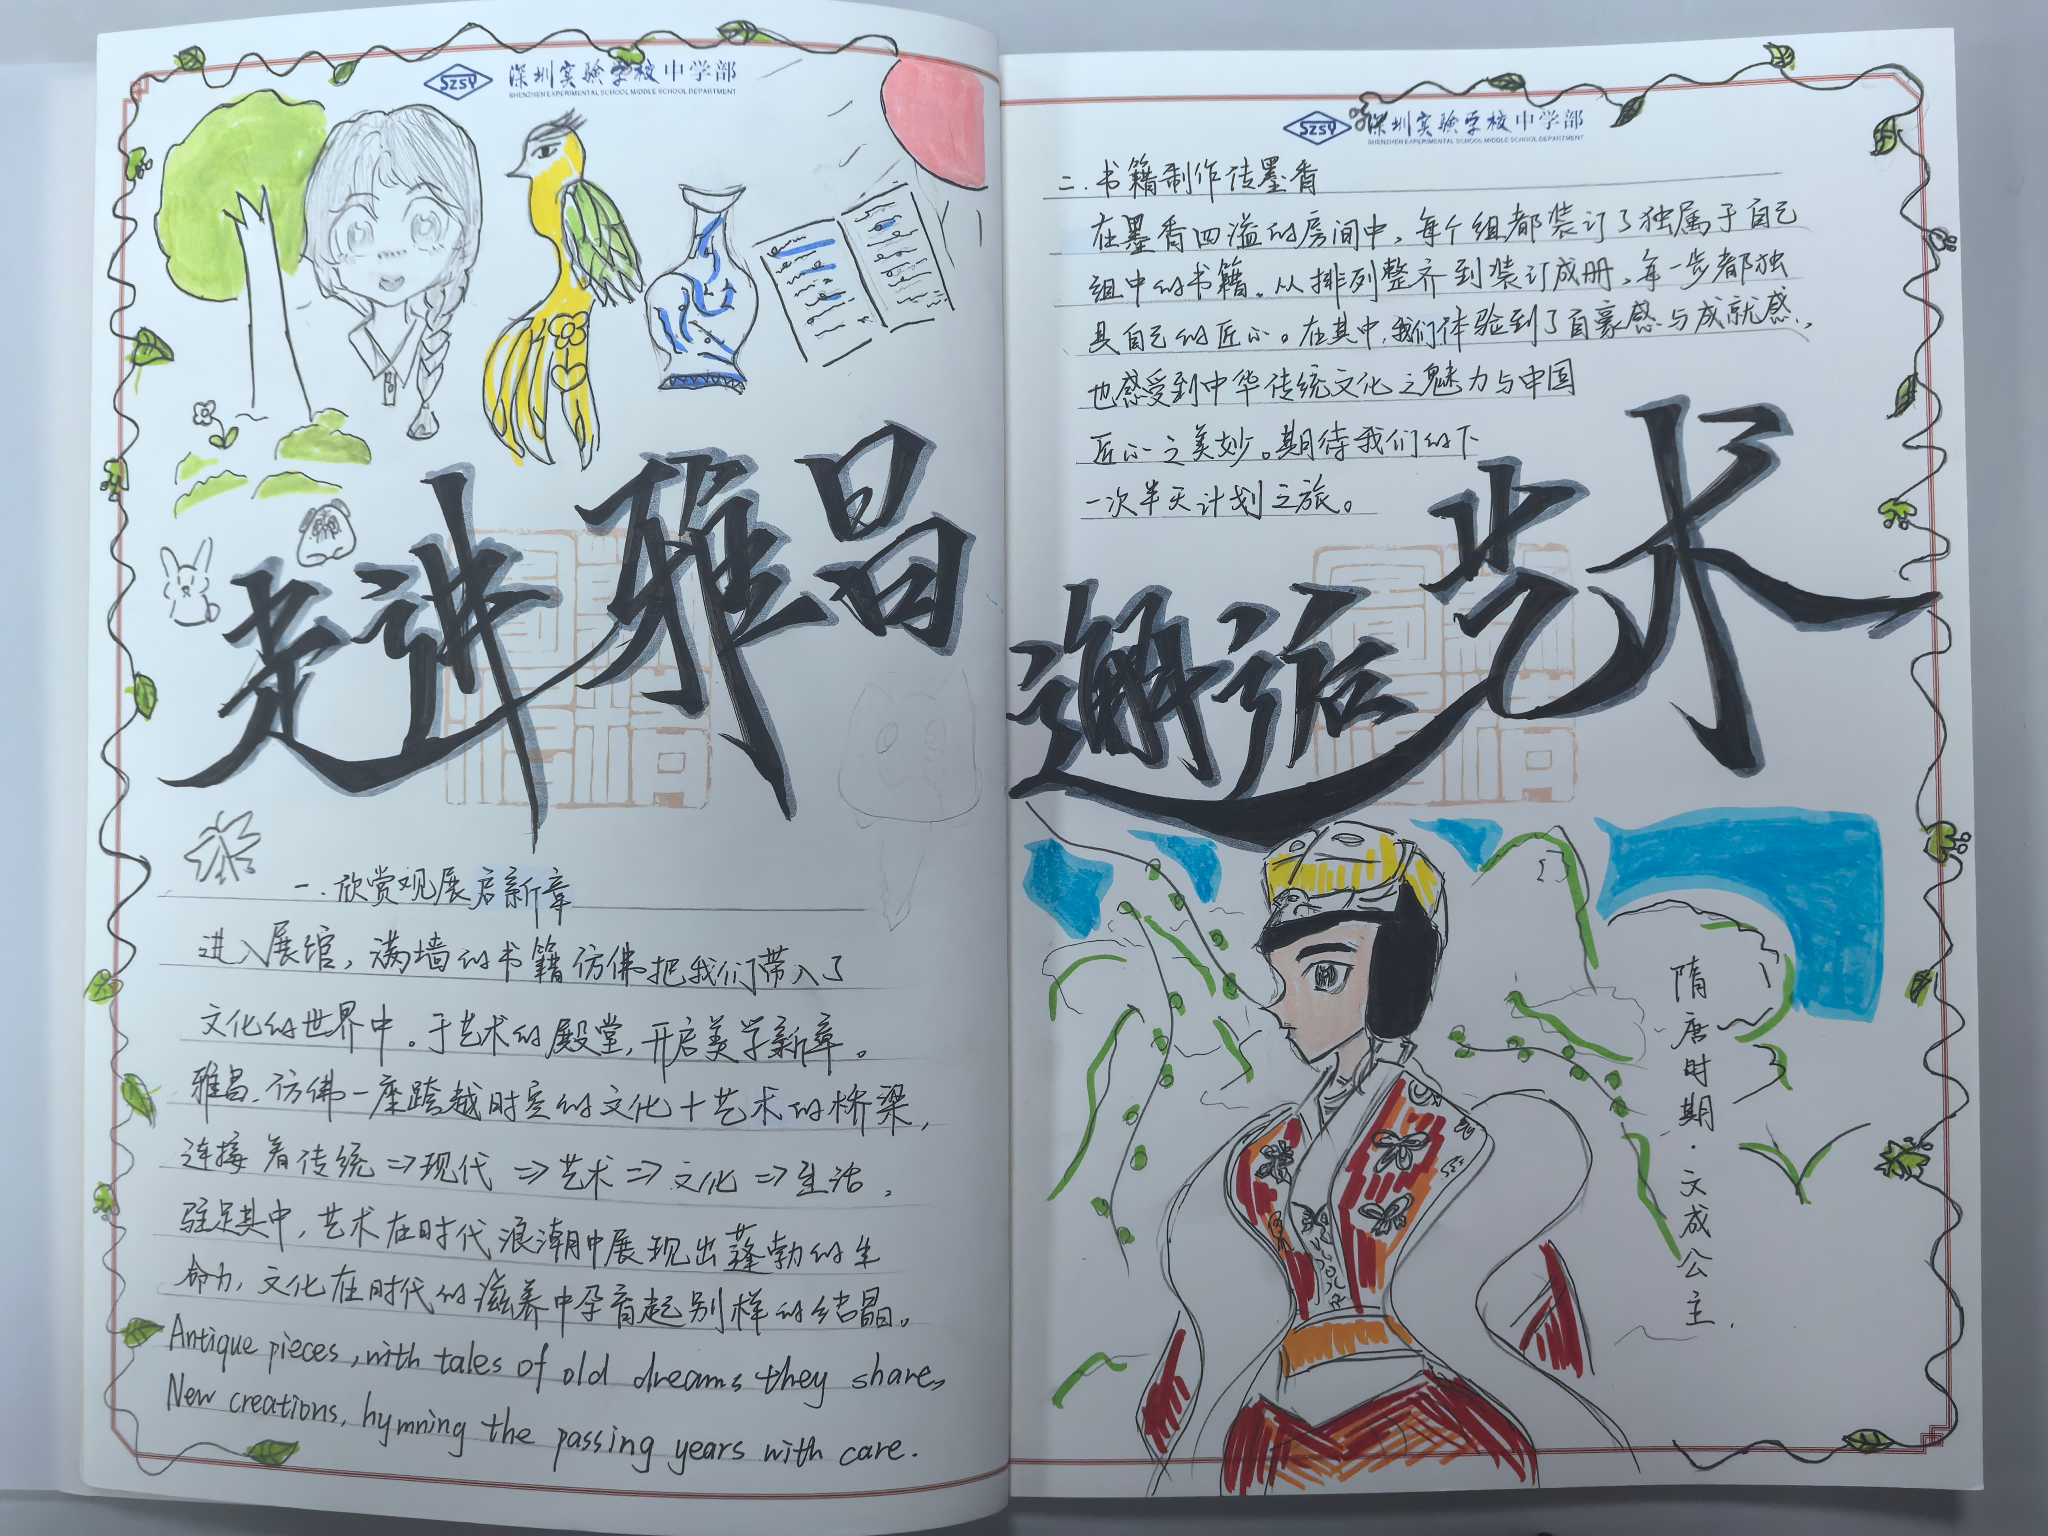 SZSY 深圳实验学校中学部
SHENZHEN EXPERIMENTAL SCHOOL MIDDLE SCHOOL DEPARTMENT
走进雅昌
一.欣赏观展启新章
进入展馆，满墙的书籍仿佛把我们带入了
文化的世界中。于艺术的殿堂，开启美学新章。
雅昌.仿佛一座跨越时空的文化+艺术的桥梁，
连接着传统=>现代=>艺术=>文化=>生活，
驻足其中，艺术在时代浪潮中展现出蓬勃的生
命力，文化在时代的滋养中孕育起别样的结晶。
Antique pieces, with tales of old dreams they share,
New creations, hymning the passing years with care.
SZSY 深圳实验学校中学部
SHENZHEN EXPERIMENTAL SCHOOL MIDDLE SCHOOL DEPARTMENT
二.书籍制作传墨香
在墨香四溢的房间中，每个组都装订了独属于自己
组中的书籍。从排列整齐到装订成册，每一步都独
具自己的匠心。在其中，我们体验到了自豪感与成就感，
也感受到中华传统文化之魅力与中国
匠心之美妙。期待我们的下
一次半天计划之旅。
邂逅艺术
隋唐时期·文成公主.